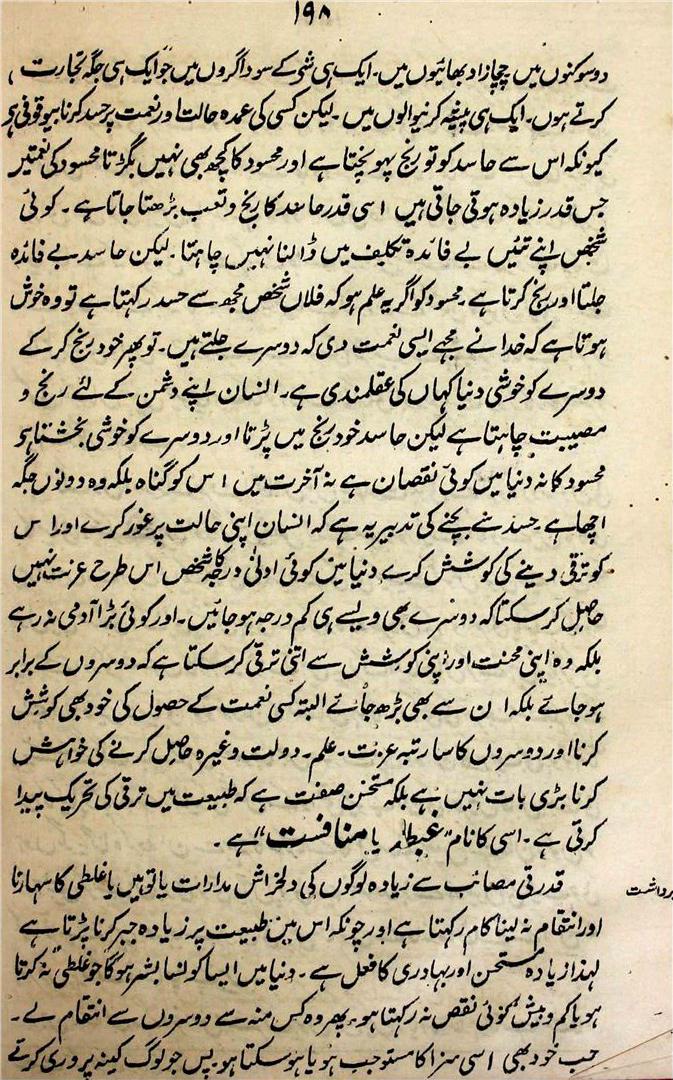 ۱۹۸
دوسوکنوں میں چچازاد بھائیوں میں۔ ایک ہی شی کے سوداگروں میں جو ایک ہی جگہ تجارت
کرتے ہوں۔ ایک ہی پیشہ کرنیوالوں میں۔ لیکن کسی کی عمدہ حالت اور نعمت پر حسد کرنا بیوقوفی ہے
کیونکہ اس سے حاسد کو تو رنج پہونچتا ہے اور محسود کا کچھ بھی نہیں بگڑتا محسود کی نعمتیں
جس قدر زیادہ ہوتی جاتی ہیں اسی قدر حاسد کا رنج و تعب بڑھتا جاتا ہے۔ کوئی
شخص اپنے تئیں بے فائدہ تکلیف میں ڈالنا نہیں چاہتا۔ لیکن حاسد بے فائدہ
جلتا اور رنج کرتا ہے۔ محسود کو اگر یہ علم ہو کہ فلاں شخص مجھ سے حسد رکہتا ہے تو وہ خوش
ہوتا ہے کہ خدا نے مجہے ایسی نعمت دی کہ دوسرے جلتے ہیں۔ تو پھر خود رنج کر کے
دوسرے کو خوشی دنیا کہاں کی عقلمندی ہے۔ انسان اپنے دشمن کے لئے رنج و
مصیبت چاہتا ہے لیکن حاسد خود رنج میں پڑتا اور دوسرے کو خوشی بخشتا ہے
محسود کا نہ دنیا میں کوئی نقصان ہے نہ آخرت میں اس کو گناہ بلکہ وہ دونوں جگہ
اچھا ہے۔ حسد سے بچنے کی تدبیر یہ ہے کہ انسان اپنی حالت پر غور کرے اور اس
کو ترقی دینے کی کوشش کرے دنیا میں کوئی ادنیٰ درجہ کا شخص اس طرح عزت نہیں
حاصل کر سکتا کہ دوسرے بھی ویسے ہی کم درجہ ہو جائیں۔ اور کوئی بڑا آدمی نہ رہے
بلکہ وہ اپنی محنت اور اپنی کوشش سے اتنی ترقی کر سکتا ہے کہ دوسروں کے برابر
ہو جائے بلکہ ان سے بھی بڑھ جائے البتہ کسی نعمت کے حصول کی خود بھی کوشش
کرنا اور دوسروں کا سا رتبہ عزت۔ علم۔ دولت وغیرہ حاصل کرنے کی خواہش
کرنا بڑی بات نہیں ہے بلکہ مستحسن صفت ہے کہ طبیعت میں ترقی کی تحریک پیدا
کرتی ہے۔ اسی کا نام "غبطہ یا منافست" ہے۔
قدرتی مصائب سے زیادہ لوگوں کی دلخراش مدارات یا توہین یا غلطی کا سہارنا
اور انتقام نہ لینا کام رکہتا ہے اور چونکہ اس میں طبیعت پر زیادہ جبر کرنا پڑتا ہے
لہذا زیادہ مستحسن اور بہادری کا فعل ہے۔ دنیا میں ایسا کونسا بشر ہوگا جو غلطی نہ کرتا
ہو یا کم و بیش کوئی نقص نہ رکہتا ہو۔ پھر وہ کس منہ سے دوسروں سے انتقام لے۔
جب خود بھی اسی سزا کا مستوجب ہو یا ہو سکتا ہو۔ پس جو لوگ کینہ پروری کرتے